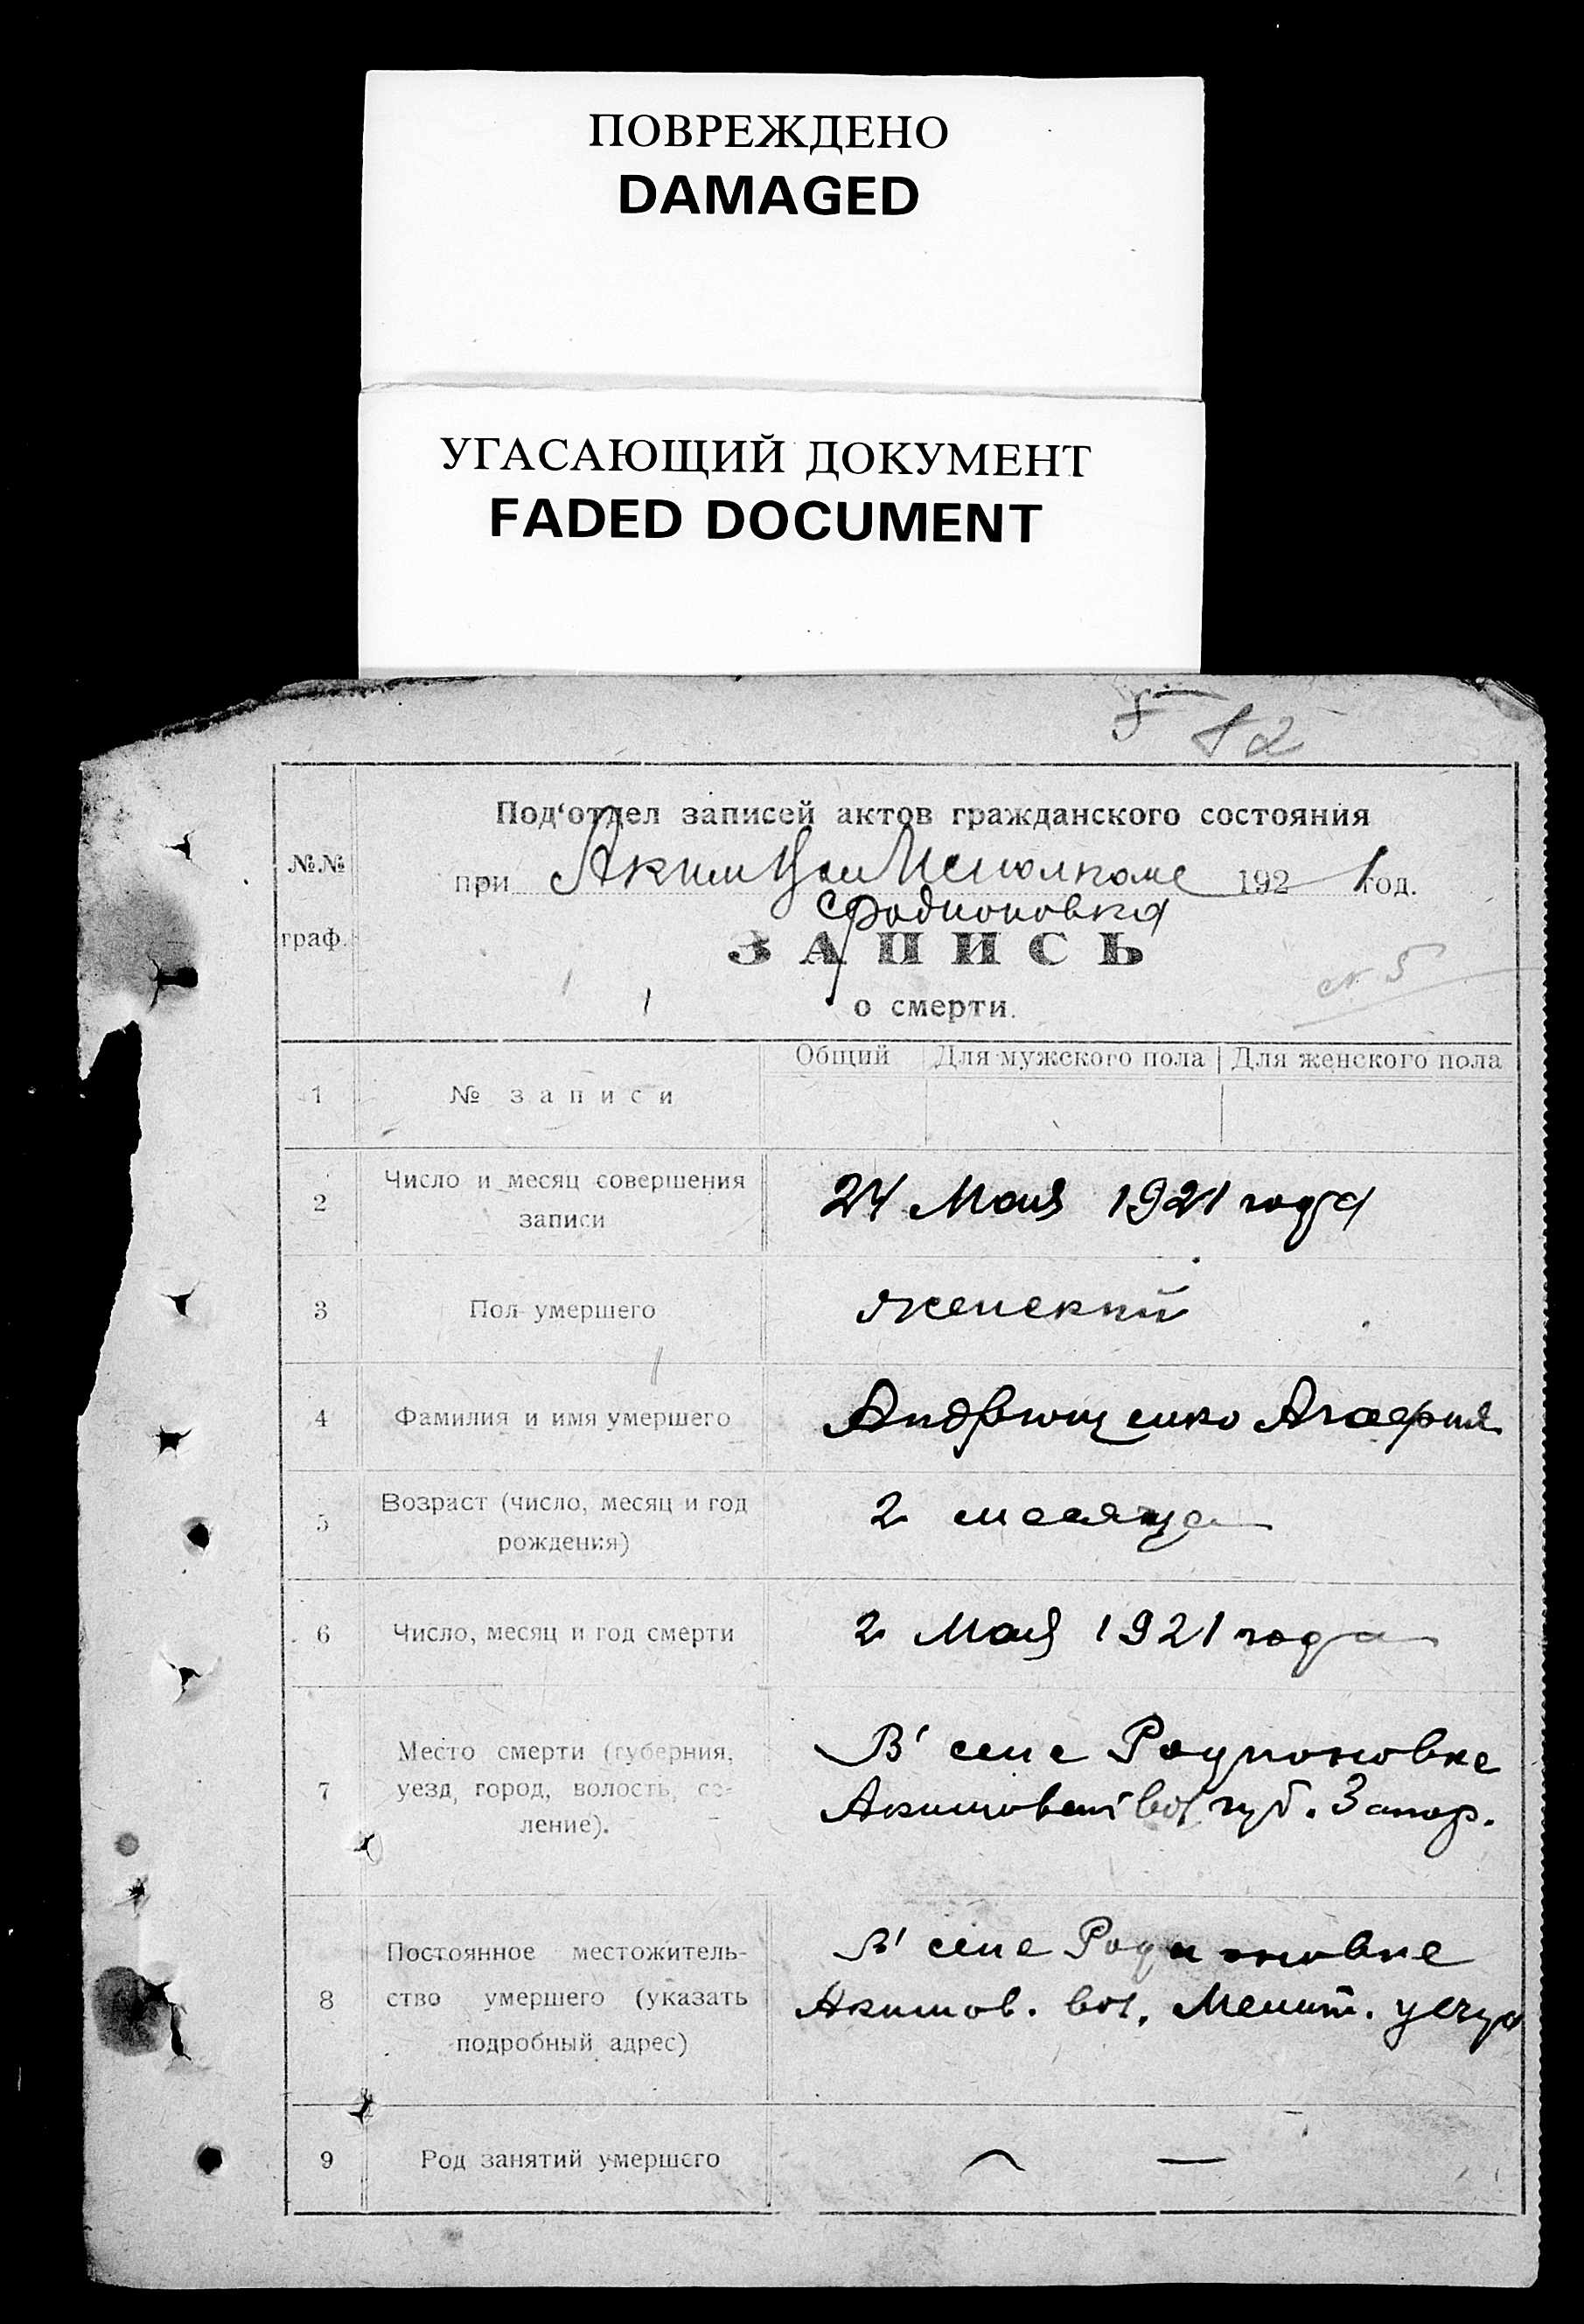 ПОВРЕЖДЕНО
DAMAGED
УГАСАЮЩИЙ ДОКУМЕНТ
FADED DOCUMENT
5 12
Под‘отдел записей актов гражданского состояния
№№ граф.
при Аким Исполкоме 1921 год.
с Родионовка
ЗАПИСЬ
о смерти.
№ 5
Общий Для мужского пола Для женского пола
1 № записи
2 Число и месяц совершения
записи
24 Мая 1921 года
3 Пол умершего женский
4 Фамилия и имя умершего Андрющенко
5 Возраст (число, месяц и год
рождения)
2 месяца
6 Число, месяц и год смерти 2 Мая 1921 года
7 Место смерти (губерния,
уезд, город, волость, се-
ление).
В' селе Родионовке
Акимовск вол губ. Запор.
8 Постоянное местожитель-
ство умершего (указать
подробный адрес)
В' селе Родионовке
Акимов. вол. Мелит. уезда
9 Род занятий умершего — —